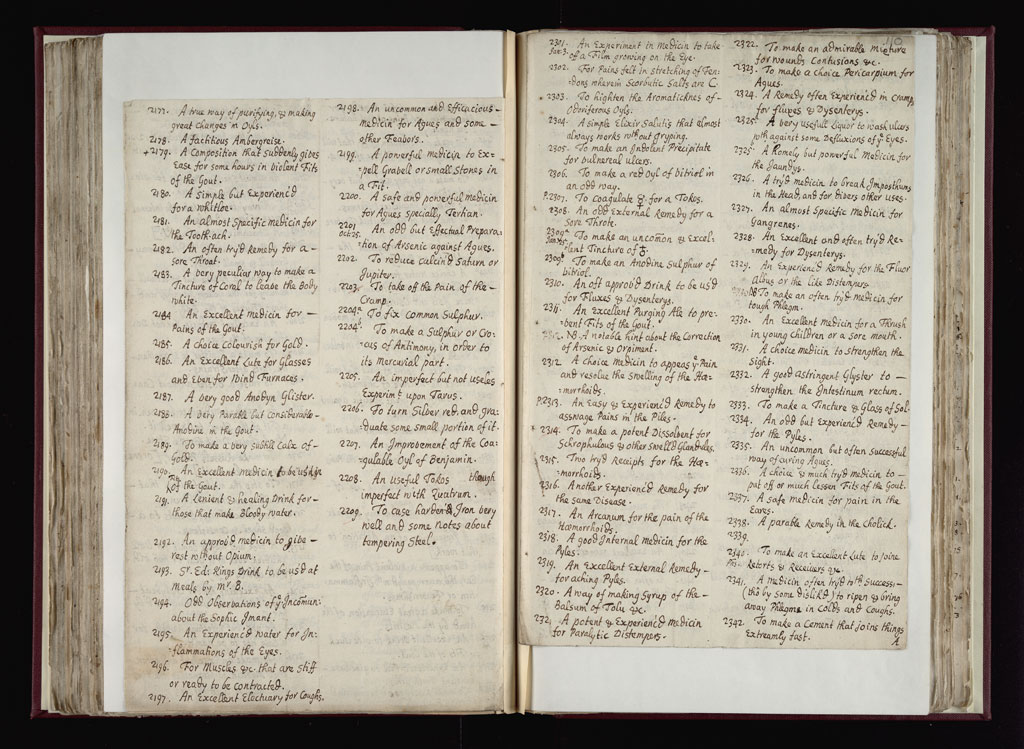 2177. A true way of purifying, & making
great changes in Oyls.
2178. A factitious Ambergreise.
+2179. A Composition that suddenly gives
Ease for some hours in violent Fits
of the Gout.
2180. A simple but Experienc'd
for a whitloe.
2181. An almost Specific medicin for
the Tooth-ach.
2182. An often try'd Remedy for a-
sore Throat.
2183. A very peculiar way to make a
Tincture of Coral to leave the Body
white.
2184 An Excellent medicin for -
Pains of the Gout.
2185. A choice Colourish for Gold.
2186. An Excellent Lute for Glasses
and Even for Wind Furnaces.
2187. A very good Anodyn Glister.
2188. A very Parable but considerable-
Anodine in the Gout.
2189. To make a very subtill Calx of-
Gold.
2190. An Excellent medicin to be us'd in
the Gout.
2191. A Lenient & healing Drink for-
those that make Bloody water.
2192. An approv'd medicin to give-
rest without Opium.
2193. Sr. Ed: Kings Drink to be us'd at
meals by mr. B.
2194. Odd Observations of ye Incom̄un:
about the Sophic
2195. An Experienc'd water for In-
-flammations of the Eyes.
2196. For Muscles &c. that are stiff
or ready to be contracted.
2197. An Excellent Electuary for Coughs.
2198. An uncommon and Efficacious-
medicin for Agues and some-
other Feavors.
2199. A powerful medicin to Ex-
-pell Gravell or small Stones in
a Fit.
2200. A safe and powerful medicin
for Agues specially, Tertian.
2201 An odd but Effectual Prepara-
Oct 25. -tion of Arsenic against Agues.
2202. To reduce calcin'd Saturn or
Jupiter.
2203. To take off the Pain of the-
Cramp.
2204a To fix common Sulphur.
2204b To make a Sulphur or Cro-
-cus of Antimony, in order to
its Mercurial part.
2205. An imperfect but not useles
Experimt upon Tarus.
2206. To turn Silver red, and gra-
duate some small portion of it.
2207. An Improvement of the Coa-
-gulable Oyl of Benjamin.
2208. An useful Tokos though
imperfect with Quatrum.
2209. To case harden Iron very
well and some Notes about
tempering Steel.
2301. An Experiment in Medicin to take
Jan: 3. of a Film growing on the Eye.
2302. For Pains felt in stretching of Ten-
-dons wherein Scorbutic Salts are C.
2303. To highten the Aromaticknes of-
Odoriferous Oyls.
2304. A simple Elixir Salutis that almost
always works without Gryping.
2305. To make an Indolent Precipitate
for vulnereal ulcers.
2306. To make a red Oyl of vitriol in
an odd way.
2307. To Coagulate ☿ for a Tokos.
2308. An odd External Remedy for a
sore Throte.
2309a To make an uncom̄on & Excel-
-lent Tincture of
2309b To make an Anodine Sulphur of
vitriol.
2310. An oft approv'd Drink to be us'd
for Fluxes & Dysenterys.
2311. An Excellent Purging Ale to pre-
-vent Fits of the Gout.
NB A notable hint about the Correction
of Arsenic & Orpiment.
2312. A choice medicin to appeas ye Pain
and resolve the swelling of the Hæ-
-morrhoids.
2313. An Easy & Experienc'd Remedy to
asswage Pains in the Piles.
2314. To make a potent Dissolvent for
Schrophulous & other swell'd Glandules.
2315. Two try'd Receipts for the Hæ-
-morrhoids.
2316. Another Experienc'd Remedy for
the same Disease.
2317. An Arcanum for the pain of the
Hæmorrhoids.
2318. A good Internal medicin for the
Pyles.
2319. An Excellent External Remedy-
for aching Pyles.
2320. A way of making Syrup of the-
Balsum of Tolu &c.
2321 A potent & Experienc'd Medicin
for Paralytic Distempers.
2322. To make an admirable Mixture
for wounds Contusions &c.
2323. To make a choice Pericarpium for
Agues.
2324. A Remedy often Experienc'd in Cramp,
for fluxes & Dysenterys.
2325 A very usefull Liquor to wash ulcers
with against some Defluxions of ye Eyes.
2325. A Homely but powerful Medicin for
the Jaundys.
2326. A try'd medicin to break Imposthums
in the Head, and for divers other uses.
2327. An almost Specific Medicin for
Gangrenes.
2328. An Excellent and often try'd Re-
-medy for Dysenterys.
2329. An Experienc'd Remedy for the Fluor
Albus or the like Distempers.
To make an often try'd medicin for
tough Phlegm.
2330. An Excellent medicin for a Thrush
in young children or a sore mouth.
2331. A choice medicin to strengthen the
sight.
2332. A good Astringent Glyster to-
strengthen the Intestinum rectum.
2333. To make a Tincture & Glass of Sol-
2334. An odd but Experienc'd Remedy-
for the Pyles.
2335. An uncommon but often successful
way of curing Agues.
2336. A choice & much try'd medicin to-
put off or much lessen Fits of the Gout.
2337. A safe medicin for pain in the
Eares.
2338. A parable Remedy in the Cholick.
2339.
2340. To make an Excellent Lute to Joine
Retorts & Receivers &c.
2341. A medicin often try'd with success-
(tho by some dislik'd) to ripen & bring
away Phlegme in Colds and Coughs.
2342. To make a Cement that joins things
Extreamly fast.
A